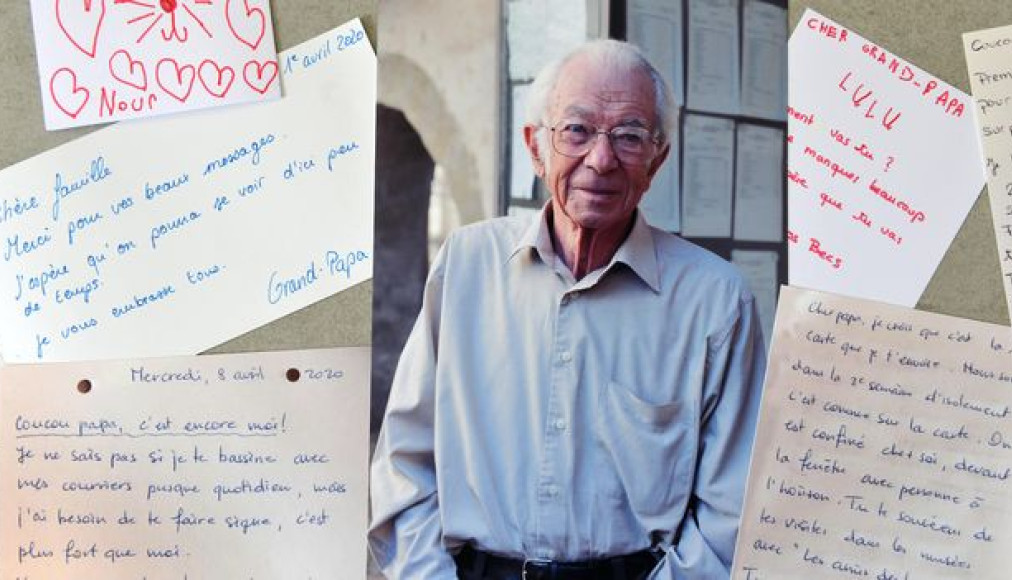 Nour
1e avril 2020
chère famille
Merci pour vos beaux messages.
J'espère qu'on pourra se voir d'ici peu
de temps.
je vous embrasse tous.
Grand-Papa
Mercredi, 8 avril 2020
Coucou papa, c'est encore moi!
Je ne sais pas si je te bassine avec
mes courriers presque quotidien, mais
j'ai besoin de te faire signe, c'est
plus fort que moi.
CHER GRAND-PAPA
LULU
ment vas tu ?
manques beaucoup
que tu vas
Becs
Coucou
Prem
pour
sur
Cher papa, je crois que c'est la
carte que je t'envoie. Nous so
dans la 2e semaine d'isolement
c'est comme sur la carte. On
est confiné chez soi, devant
la fenêtre avec personne à
l'horizon. Tu te souviens de
tes visites dans les musées
avec "Les amis de